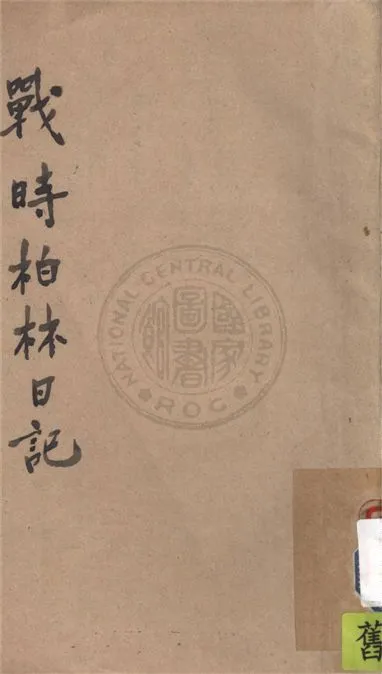 戰時柏林日記
NATIONAL CENTRAL LIBRARY
國家圖書館
ROC
舊